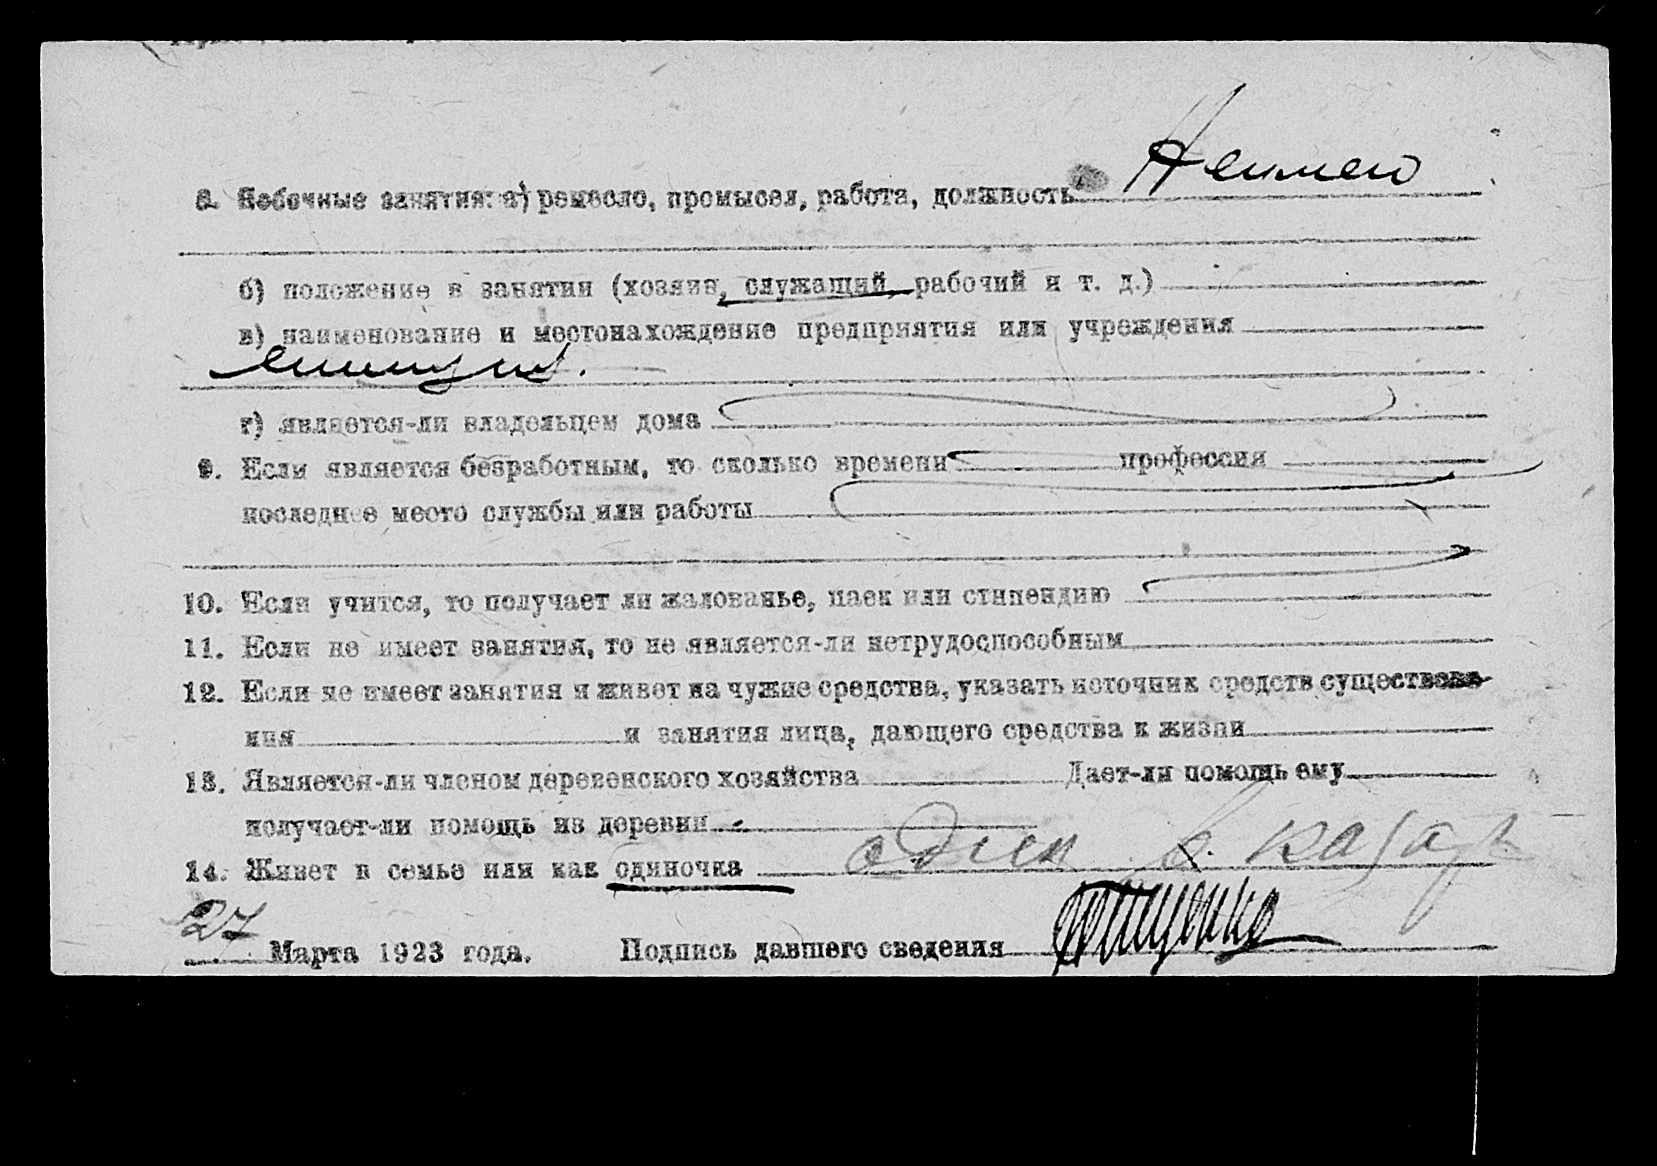 8. Побочные занятия: а) ремесло, промысел, работа, должность Неимею
б) положение в занятии (хозяин, служащий, рабочий и т. д.)
в) наименование и местонахождение предприятия или учреждения
г) является-ли владельцем дома
9. Если является безработным, то сколько времени профессия
последнее место службы или работы
10. Если учится, то получает ли жалованье, паек или стипендию
11. Если не имеет занятия, то не является-ли нетрудоспособным
12. Если не имеет занятия и живет на чужие средства, указать источник средств существова
ния и занятия лица, дающего средства к жизни
13. Является-ли членом деревенского хозяйства Дает-ли помощь ему
получает-ли помощь из деревни
14. Живет в семье или как одиночка один в казар
27 Марта 1923 года. Подпись давшего сведения